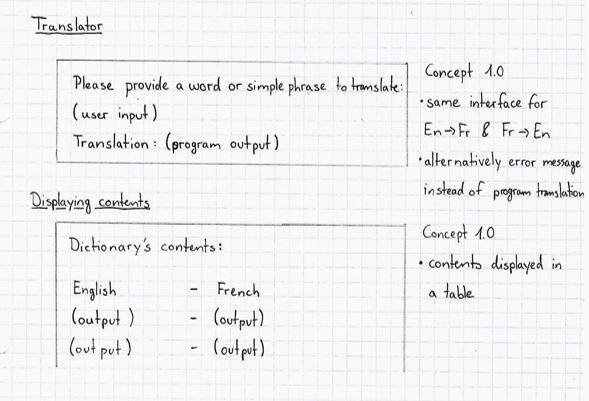 Translator
Please provide a word or simple phrase to translate:
(user input)
Translation: (program output)
Concept 1.0
• same interface for
En→Fr & Fr→En
• alternatively error message
instead of program translation
Displaying contents
Dictionary's contents:
English - French
(output) - (output)
(output) - (output)
Concept 1.0
• contents displayed in
a table